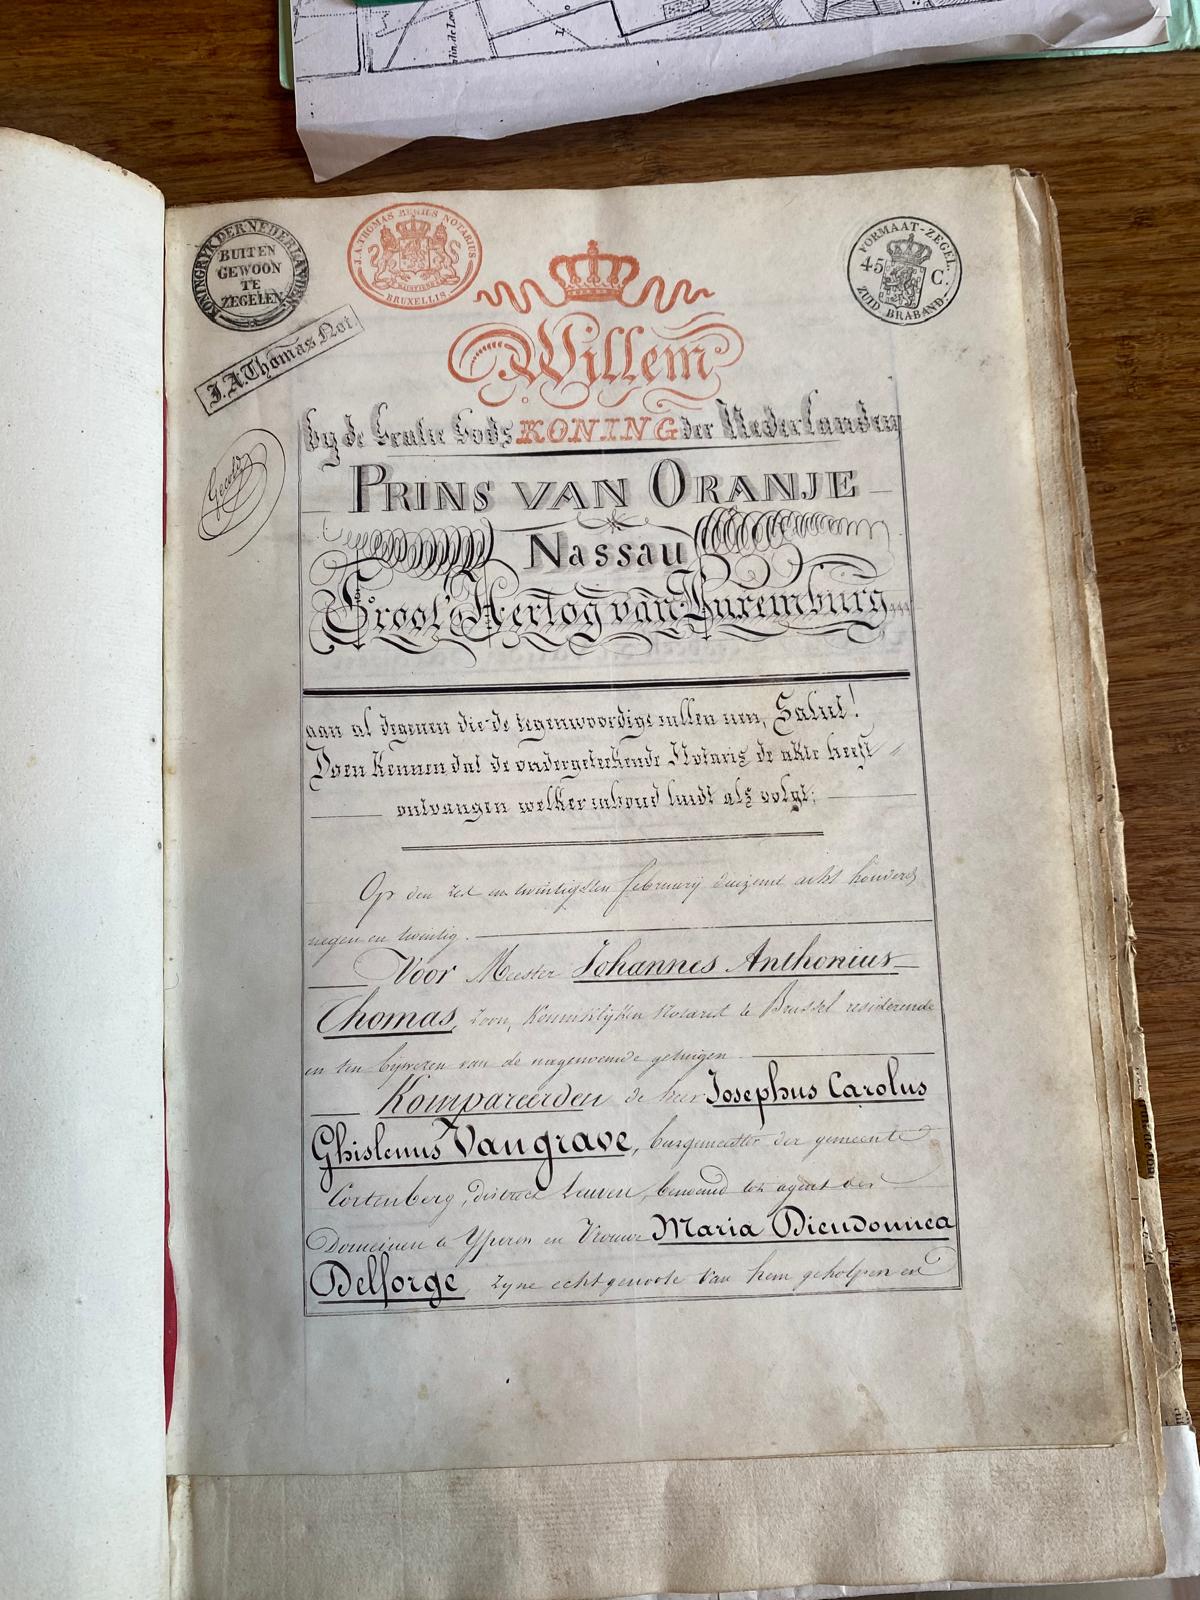 lin. de Loo
KONINGRYK DER NEDERLANDEN
BUITEN
GEWOON
TE
ZEGELEN
J. A. THOMAS REGIUS NOTARIUS
BRUXELLIS
FORMAAT-ZEGEL
45 C.
ZUID BRABAND
J. A. Thomas Not.
Willem
by de Gratie Gods KONING der Nederlanden
PRINS VAN ORANJE
Nassau
Groot Hertog van Luxemburg
aan al degenen die de tegenwoordige zullen zien, Salut!
Doen kennen dat de ondergeteekende Notaris de akte heeft
ontvangen welker inhoud luidt als volgt:
Op den zes en twintigsten februarij duizend acht honderd
negen en twintig.
Voor Meester Johannes Anthonius
Thomas, zoon, Koninklijken Notaris te Brussel residerende
en ten bijwezen van de nagenoemde getuigen
Kompareerden de heer Josephus Carolus
Ghislenus Vangrave, burgemeester der gemeente
Cortenberg, district Leuven, benoemd tot agent der
Domeinen te Yperen en Vrouwe Maria Dieudonnea
Delforge zyne echtgenoote van hem geholpen en